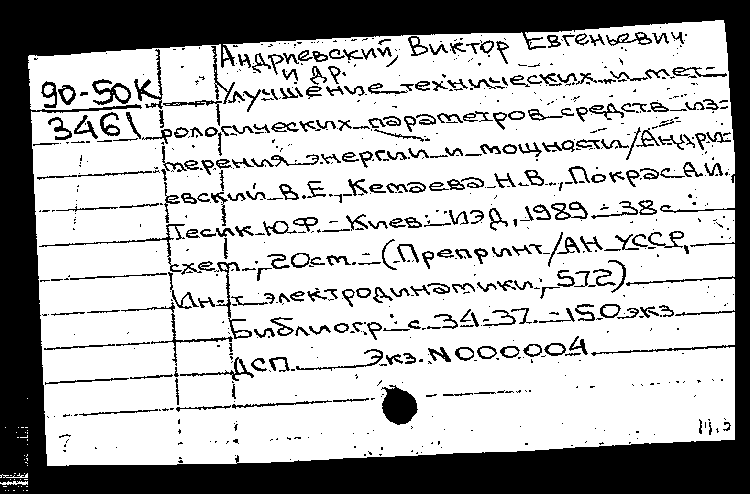 Андриевский, Виктор Евгеньевич
и др.
90-50К
3461
Улучшение технических и мет-
рологических параметров средств из-
мерения энергии и мощности/Андри-
евский В.Е., Кетаева Н.В., Покрас А.И.,
Тесик Ю.Ф. - Киев: ИЭД, 1989. - 38с:
схем.; 20см. - (Препринт/АН УССР,
Ин-т электродинамики; 572).
Библиогр: с 34-37. - 150 экз
ДСП. Экз. N000004.
?